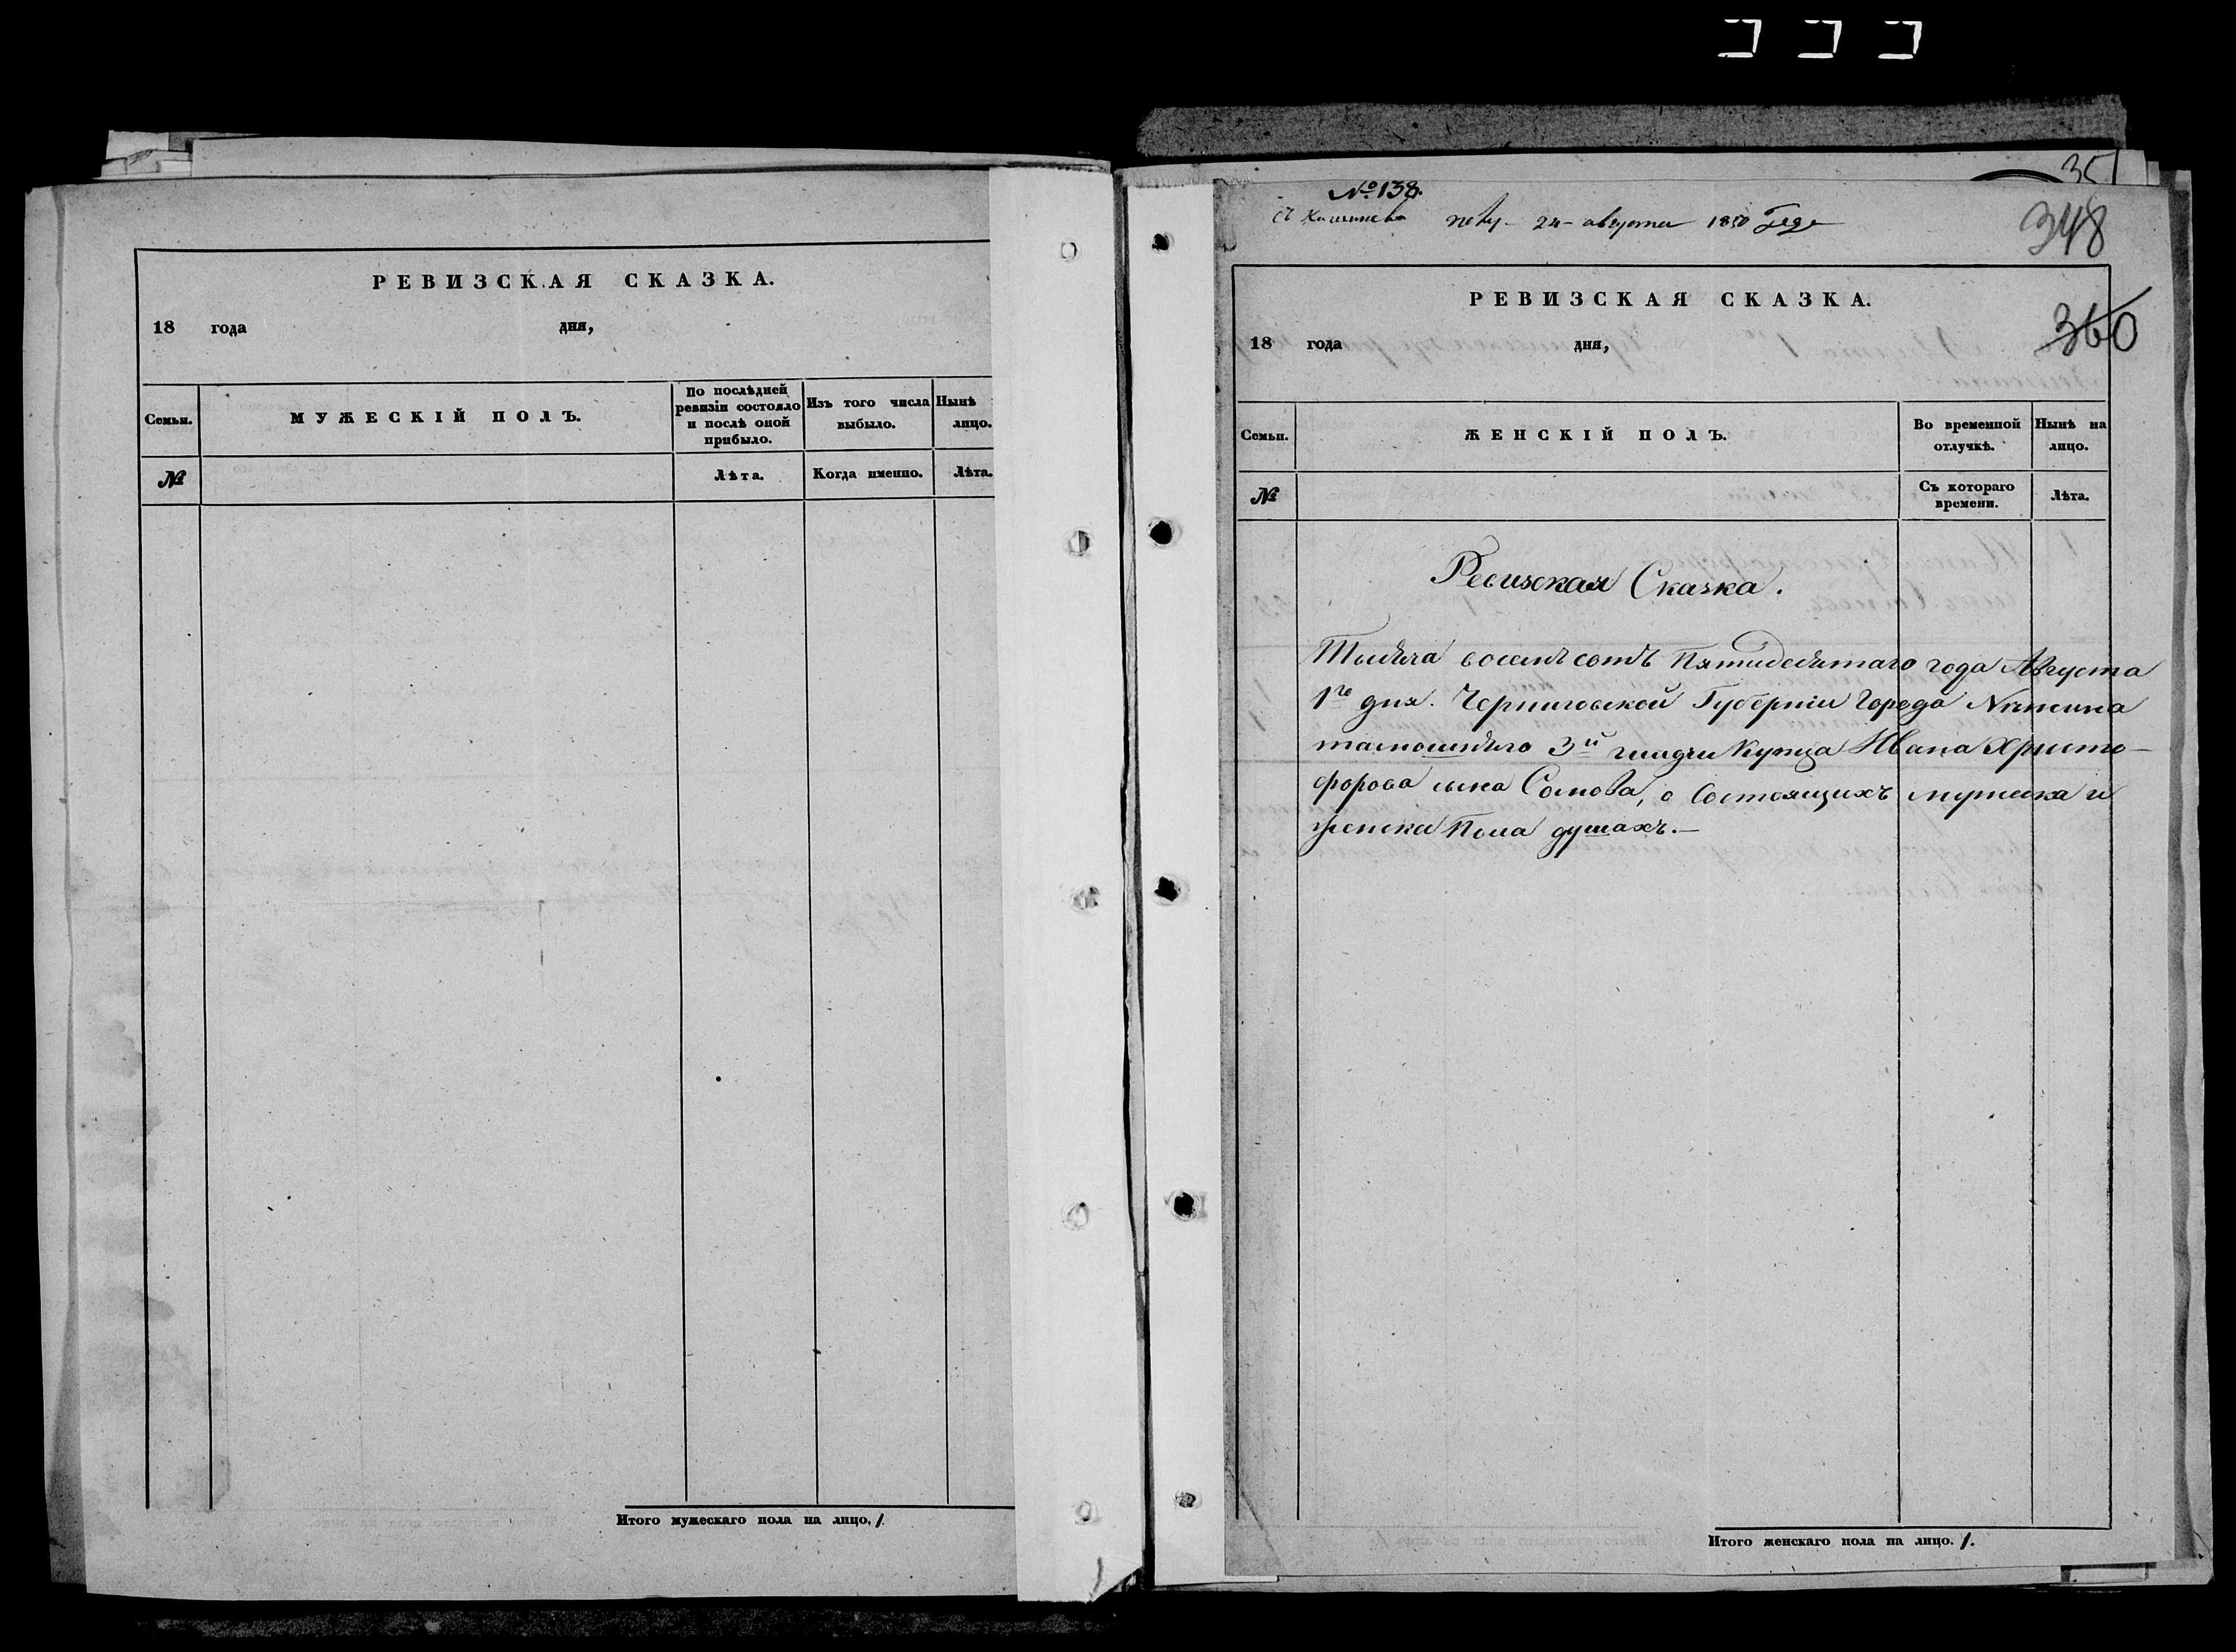 РЕВИЗСКАЯ СКАЗКА.
18 года дня,
Семьи.
МУЖЕСКІЙ ПОЛЪ.
По послѣдней ревизіи состояло и послѣ оной прибыло.
Изъ того числа выбыло.
Нынѣ лицо.
№
Лѣта.
Когда именно.
Лѣта.
Итого мужескаго пола на лицо. /
351
№ 138.
24 августа 1850
348
РЕВИЗСКАЯ СКАЗКА.
360
18 года дня,
Семьи.
ЖЕНСКІЙ ПОЛЪ.
Во временной отлучкѣ.
Нынѣ на лицо.
№
Съ котораго времени.
Лѣта.
Ревизская Сказка.
Тысяча восемьсотъ Пятидесятаго года Августа
1го дня. Черниговской Губерніи Города Нѣжина
3й гильдіи Купца Ивана Христо-
форова сына Сомова, о Состоящихъ мужеска и
женска Пола душахъ.—
Итого женскаго пола на лицо. /.